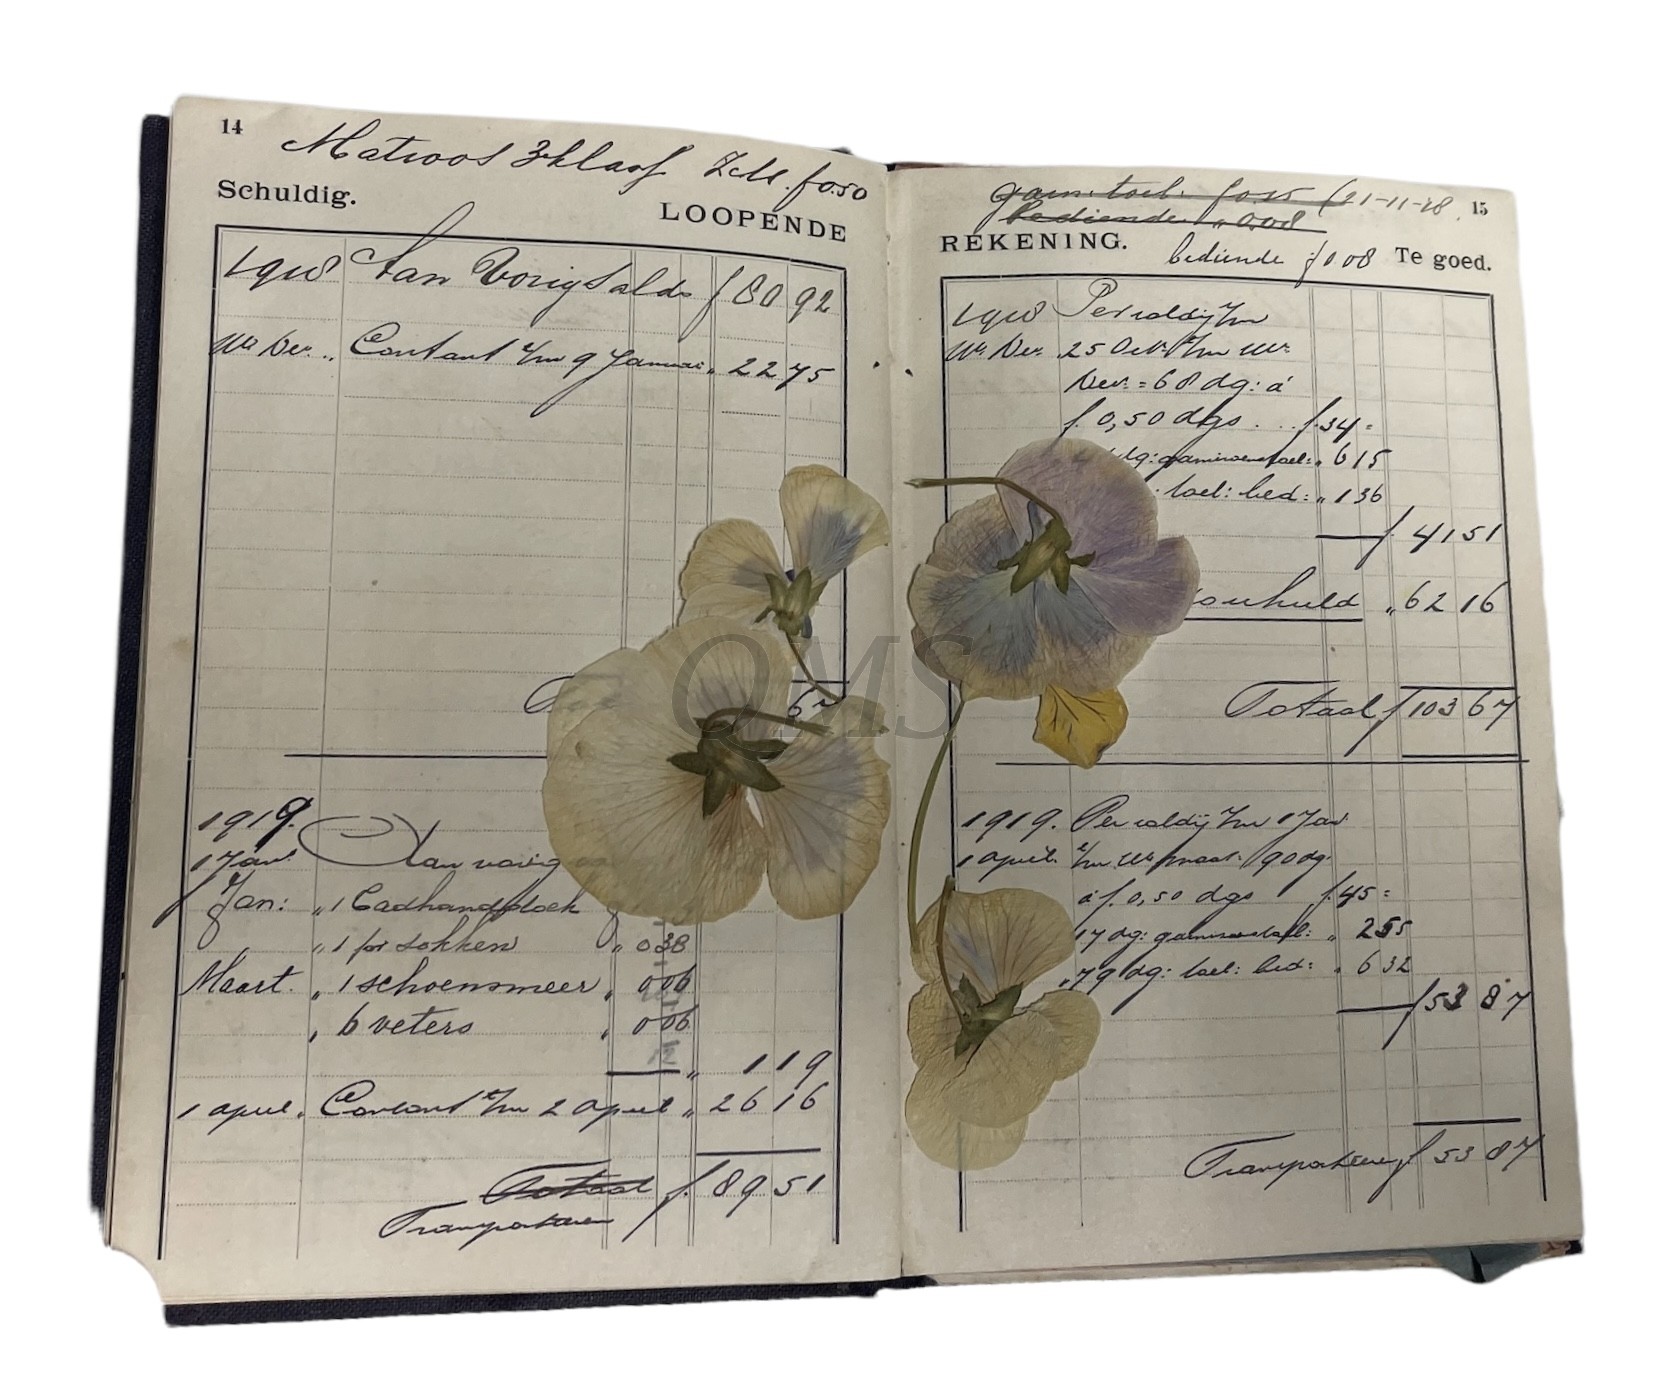 14
Matroos 3e klasse Zeem. f 0.50
Schuldig.
LOOPENDE
1918 Aan Vorig Saldo f 80 92
Ulto Dec. „ Contant t/m 9 Januari „ 22 75
67
1919.
1 Jan. Aan vorig
Jan: „ 1 Badhanddoek
„ 1 pr sokken „ 0 38
Maart. „ 1 schoensmeer „ 0 06
„ 6 veters „ 0 06
12
„ 1 19
1 april „ Contant t/m 2 april „ 26 16
Totaal f 89 51
Transporteeren
gam: toel: f 0.15 (21-11-18 15
bediende „ 0,08
REKENING.
bediende f 0 08 Te goed.
1918 Per soldij t/m
Ulto Dec. 25 Oct. t/m Ulto
Dec. = 68 dg: à
f. 0,50 dgs ... f. 34 =
dg: gamizoenstoel: „ 6 15
toel: bed: „ 1 36
f 41 51
schuld „ 62 16
Totaal f 103 67
QMS
1919. Per soldij t/m 1 Jan
1 april. t/m Ulto maart 90 dg
à f. 0,50 dgs f. 45 =
17 dg: gamizoenstoel: „ 2 55
79 dg: toel: bed: „ 6 32
f 53 87
Transporteeren f 53 87